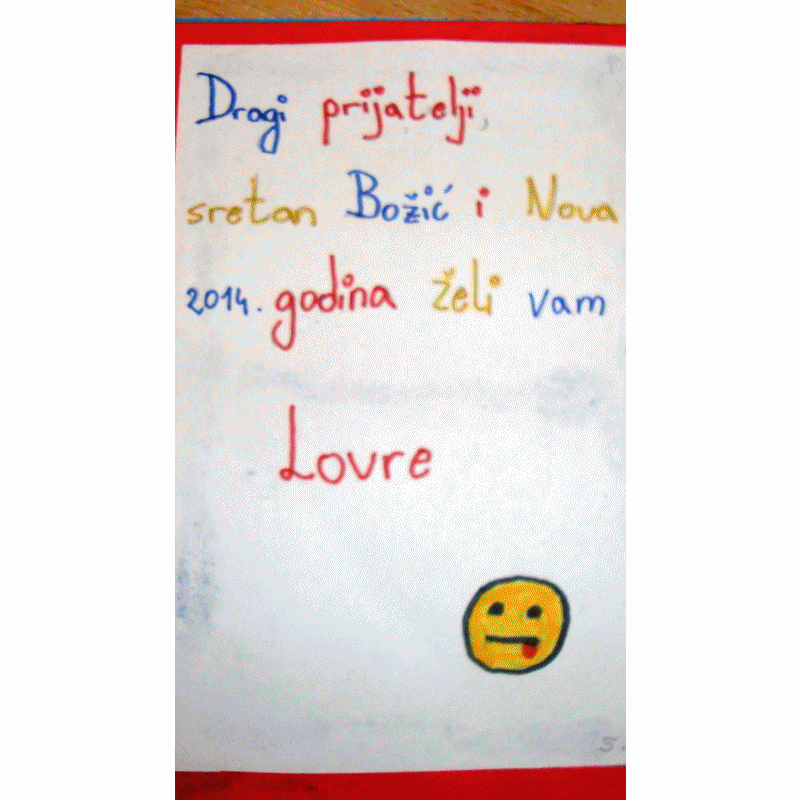 Dragi prijatelji,
sretan Božić i Nova
2014. godina želi vam
Lovre